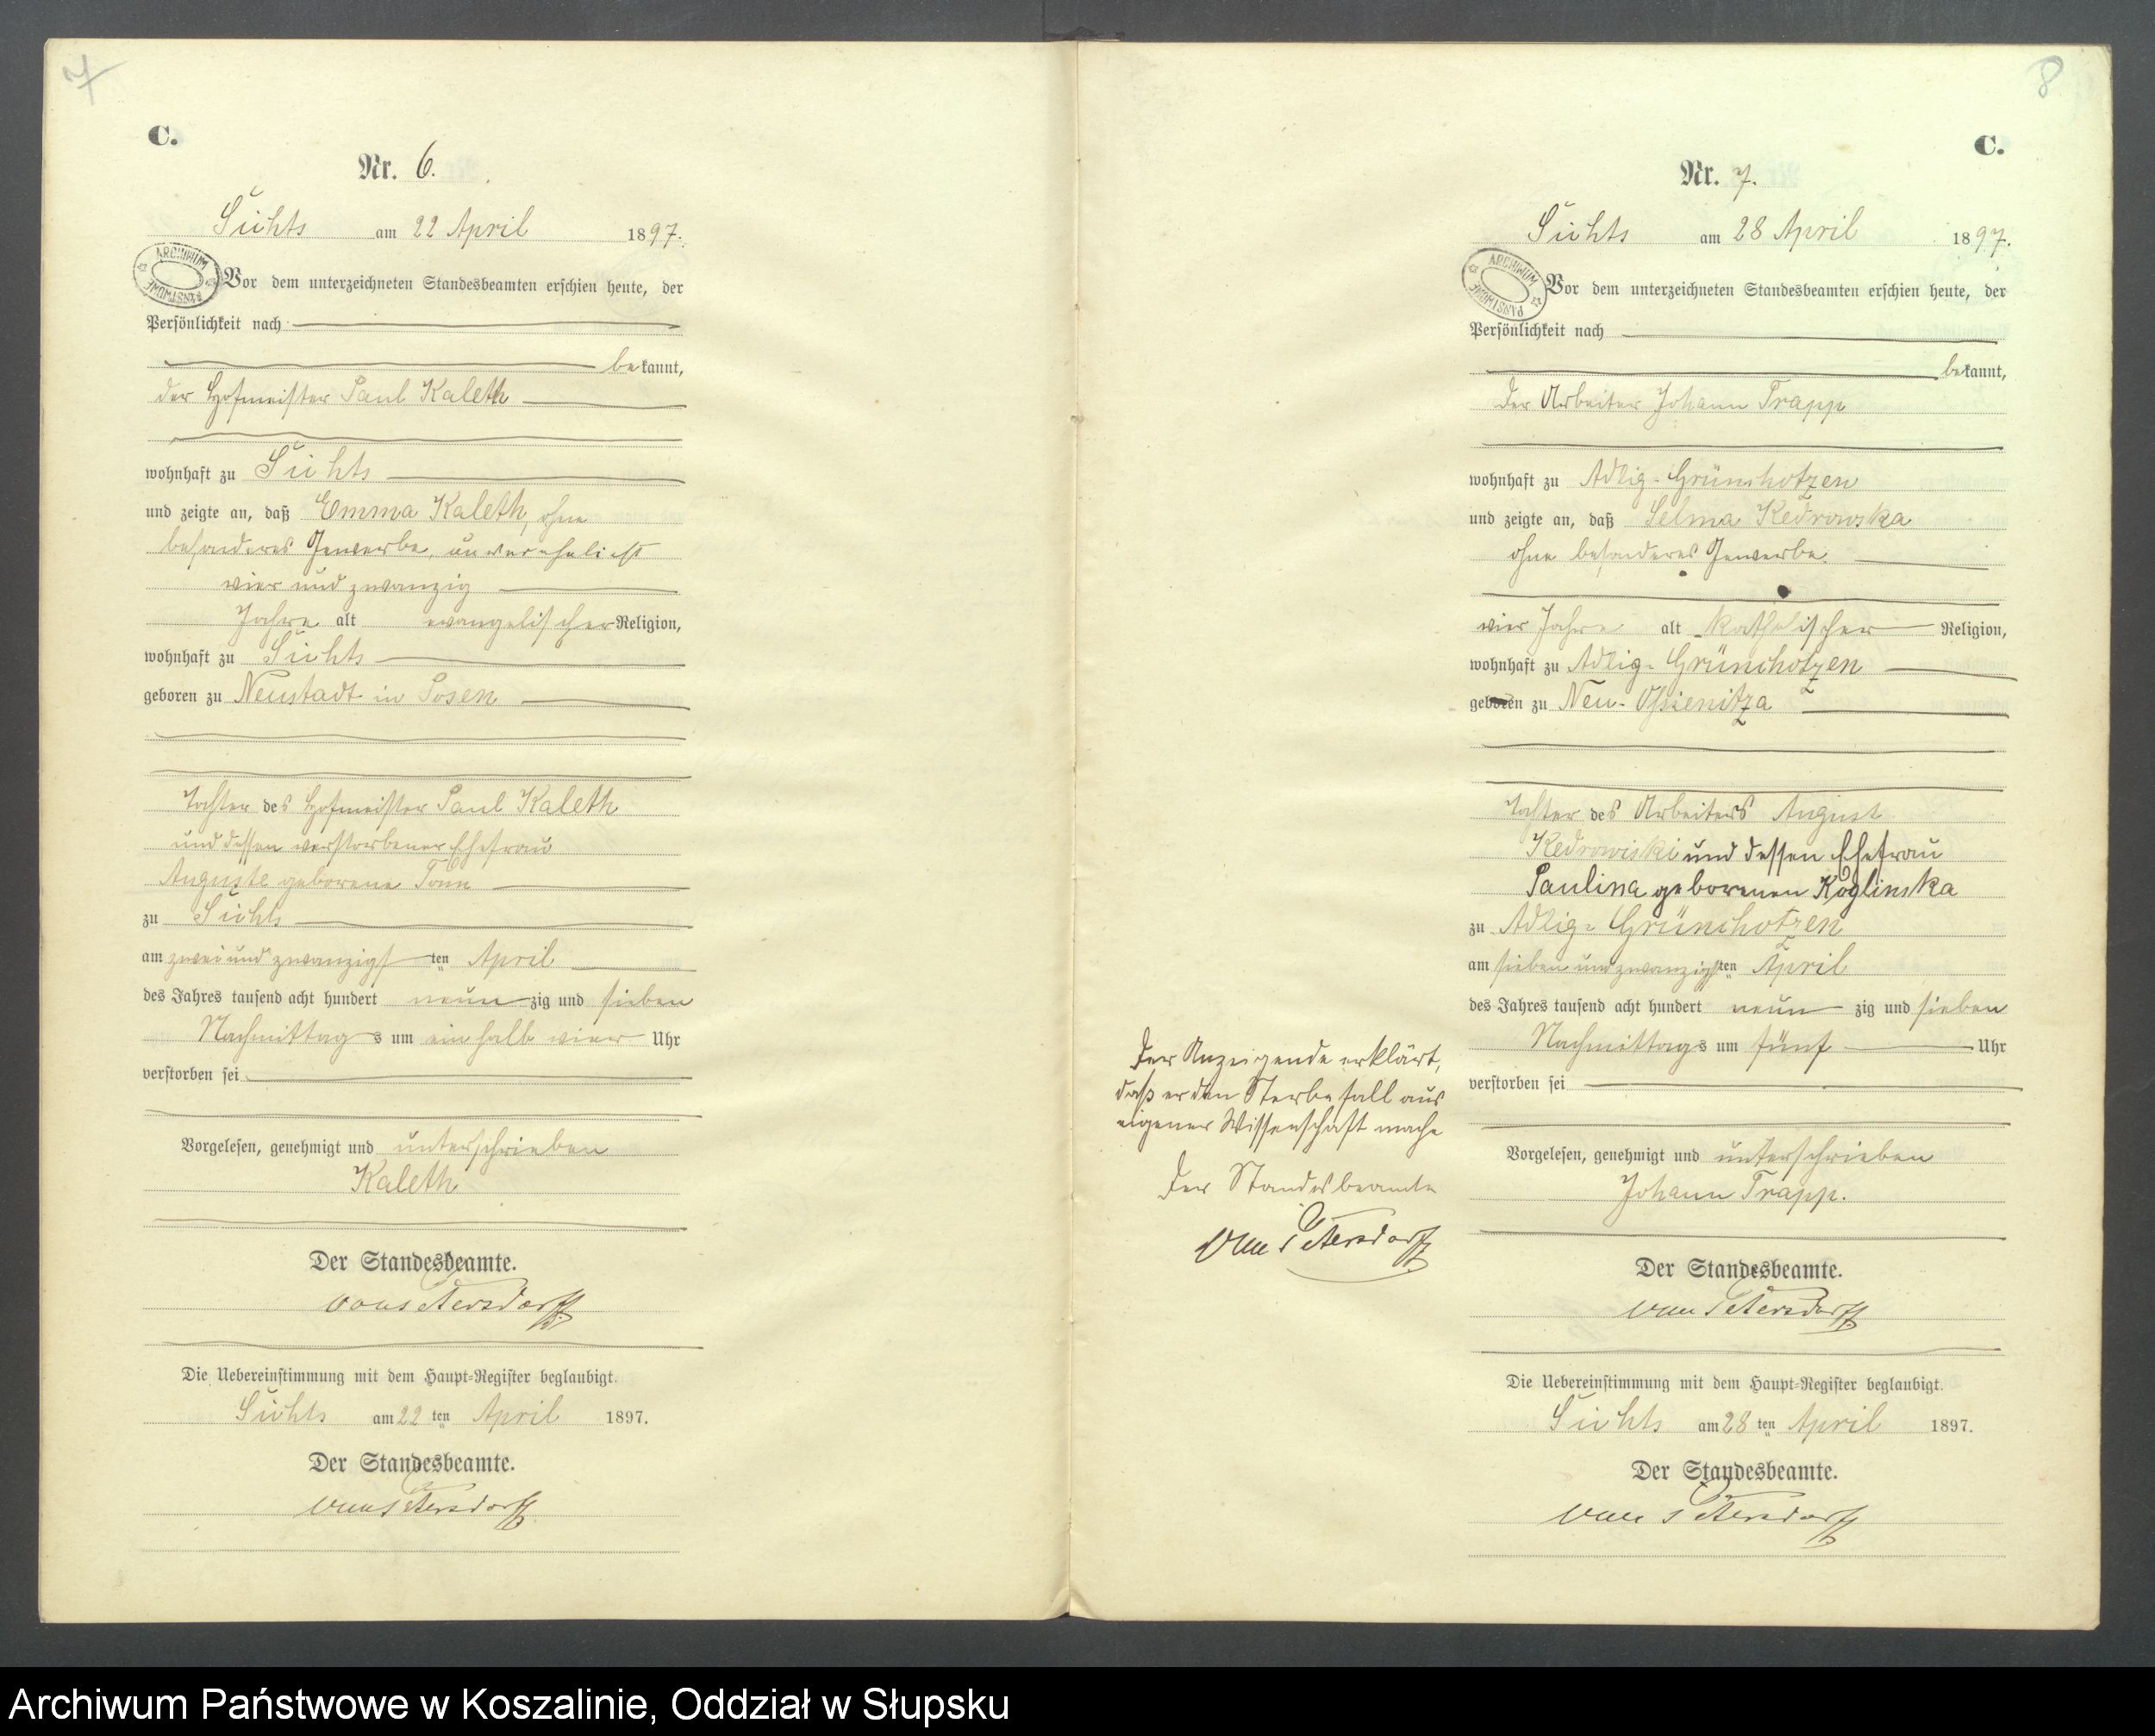 7
C.
Nr. 6.
Sichts am 22 April 1897.
ARCHIWUM PAŃSTWOWE
Vor dem unterzeichneten Standesbeamten erschien heute, der
Persönlichkeit nach
bekannt,
der Hofmeister Paul Kaleth
wohnhaft zu Sichts
und zeigte an, daß Emma Kaleth, ohne
besonderes Gewerbe, unverehelicht
vier und zwanzig
Jahre alt evangelischer Religion,
wohnhaft zu Sichts
geboren zu Neustadt in Posen
Tochter des Hofmeister Paul Kaleth
und dessen verstorbener Ehefrau
Auguste geborene Tonn
zu Sichts
am zwei und zwanzigsten April
des Jahres tausend acht hundert neunzig und sieben
Nachmittags um ein halb vier Uhr
verstorben sei
Vorgelesen, genehmigt und unterschrieben
Kaleth
Der Standesbeamte.
von Petersdorff
Die Uebereinstimmung mit dem Haupt-Register beglaubigt.
Sichts am 22 ten April 1897.
Der Standesbeamte.
von Petersdorff
8
C.
Nr. 7.
Sichts am 28 April 1897.
ARCHIWUM PAŃSTWOWE
Vor dem unterzeichneten Standesbeamten erschien heute, der
Persönlichkeit nach
bekannt,
der Arbeiter Johann Trapp
wohnhaft zu Adlig-Grünchotzen
und zeigte an, daß Selma Kedrowska
ohne besonderes Gewerbe.
vier Jahre alt katholischer Religion,
wohnhaft zu Adlig-Grünchotzen
geboren zu Neu-Ossienitza
Tochter des Arbeiters August
Kedrowiski und dessen Ehefrau
Paulina geborenen Koglinska
zu Adlig-Grünchotzen
am sieben und zwanzigsten April
des Jahres tausend acht hundert neunzig und sieben
Nachmittags um fünf Uhr
verstorben sei
Der Anzeigende erklärt,
daß er den Sterbefall aus
eigener Wissenschaft mache
Der Standesbeamte
von Petersdorff
Vorgelesen, genehmigt und unterschrieben
Johann Trapp.
Der Standesbeamte.
von Petersdorff
Die Uebereinstimmung mit dem Haupt-Register beglaubigt.
Sichts am 28 ten April 1897.
Der Standesbeamte.
von Petersdorff
Archiwum Państwowe w Koszalinie, Oddział w Słupsku